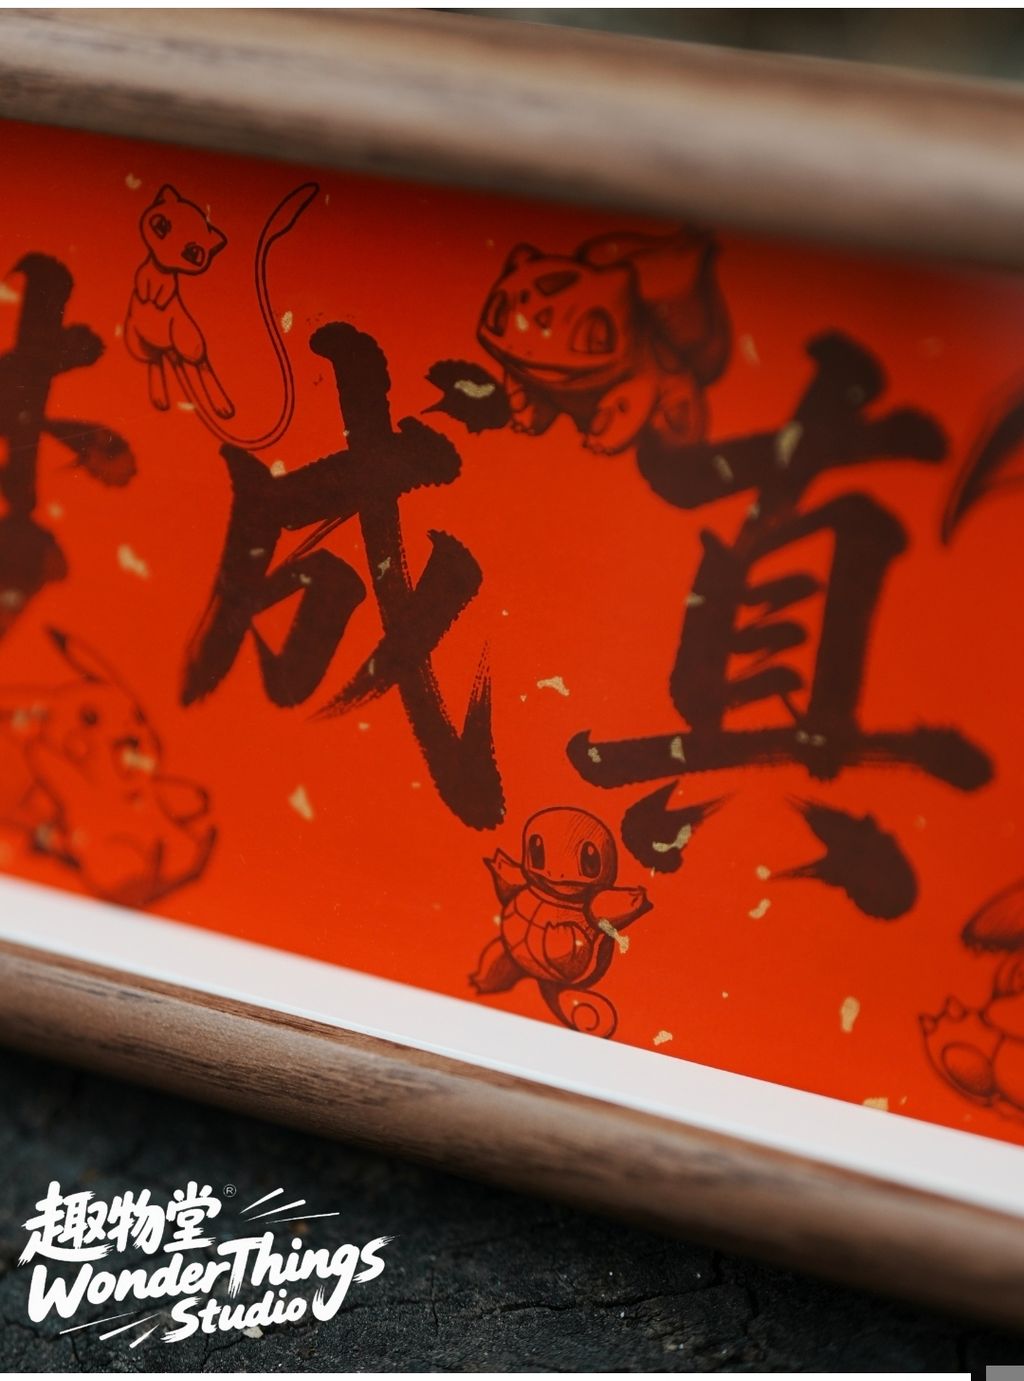 成真
趣物堂®
WonderThings
Studio